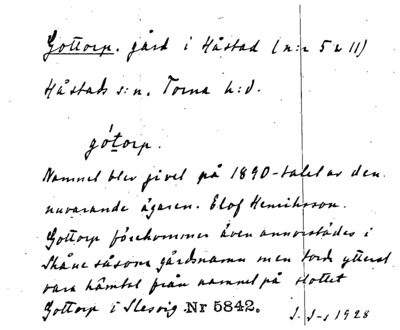 Gottorp. gård i Håstad (n:r 5 o 11)
Håstads s:n. Torna h:d.
gó'torp.
Namnet blev givet på 1890-talet av den
nuvarande ägaren. Elof Henriksson.
Gottorp förekommer även annorstädes i
Skåne såsom gårdsnamn men torde ytterst
vara hämtat från namnet på slottet
Gottorp i Slesvig. Nr 5842.
J. S-s 1928